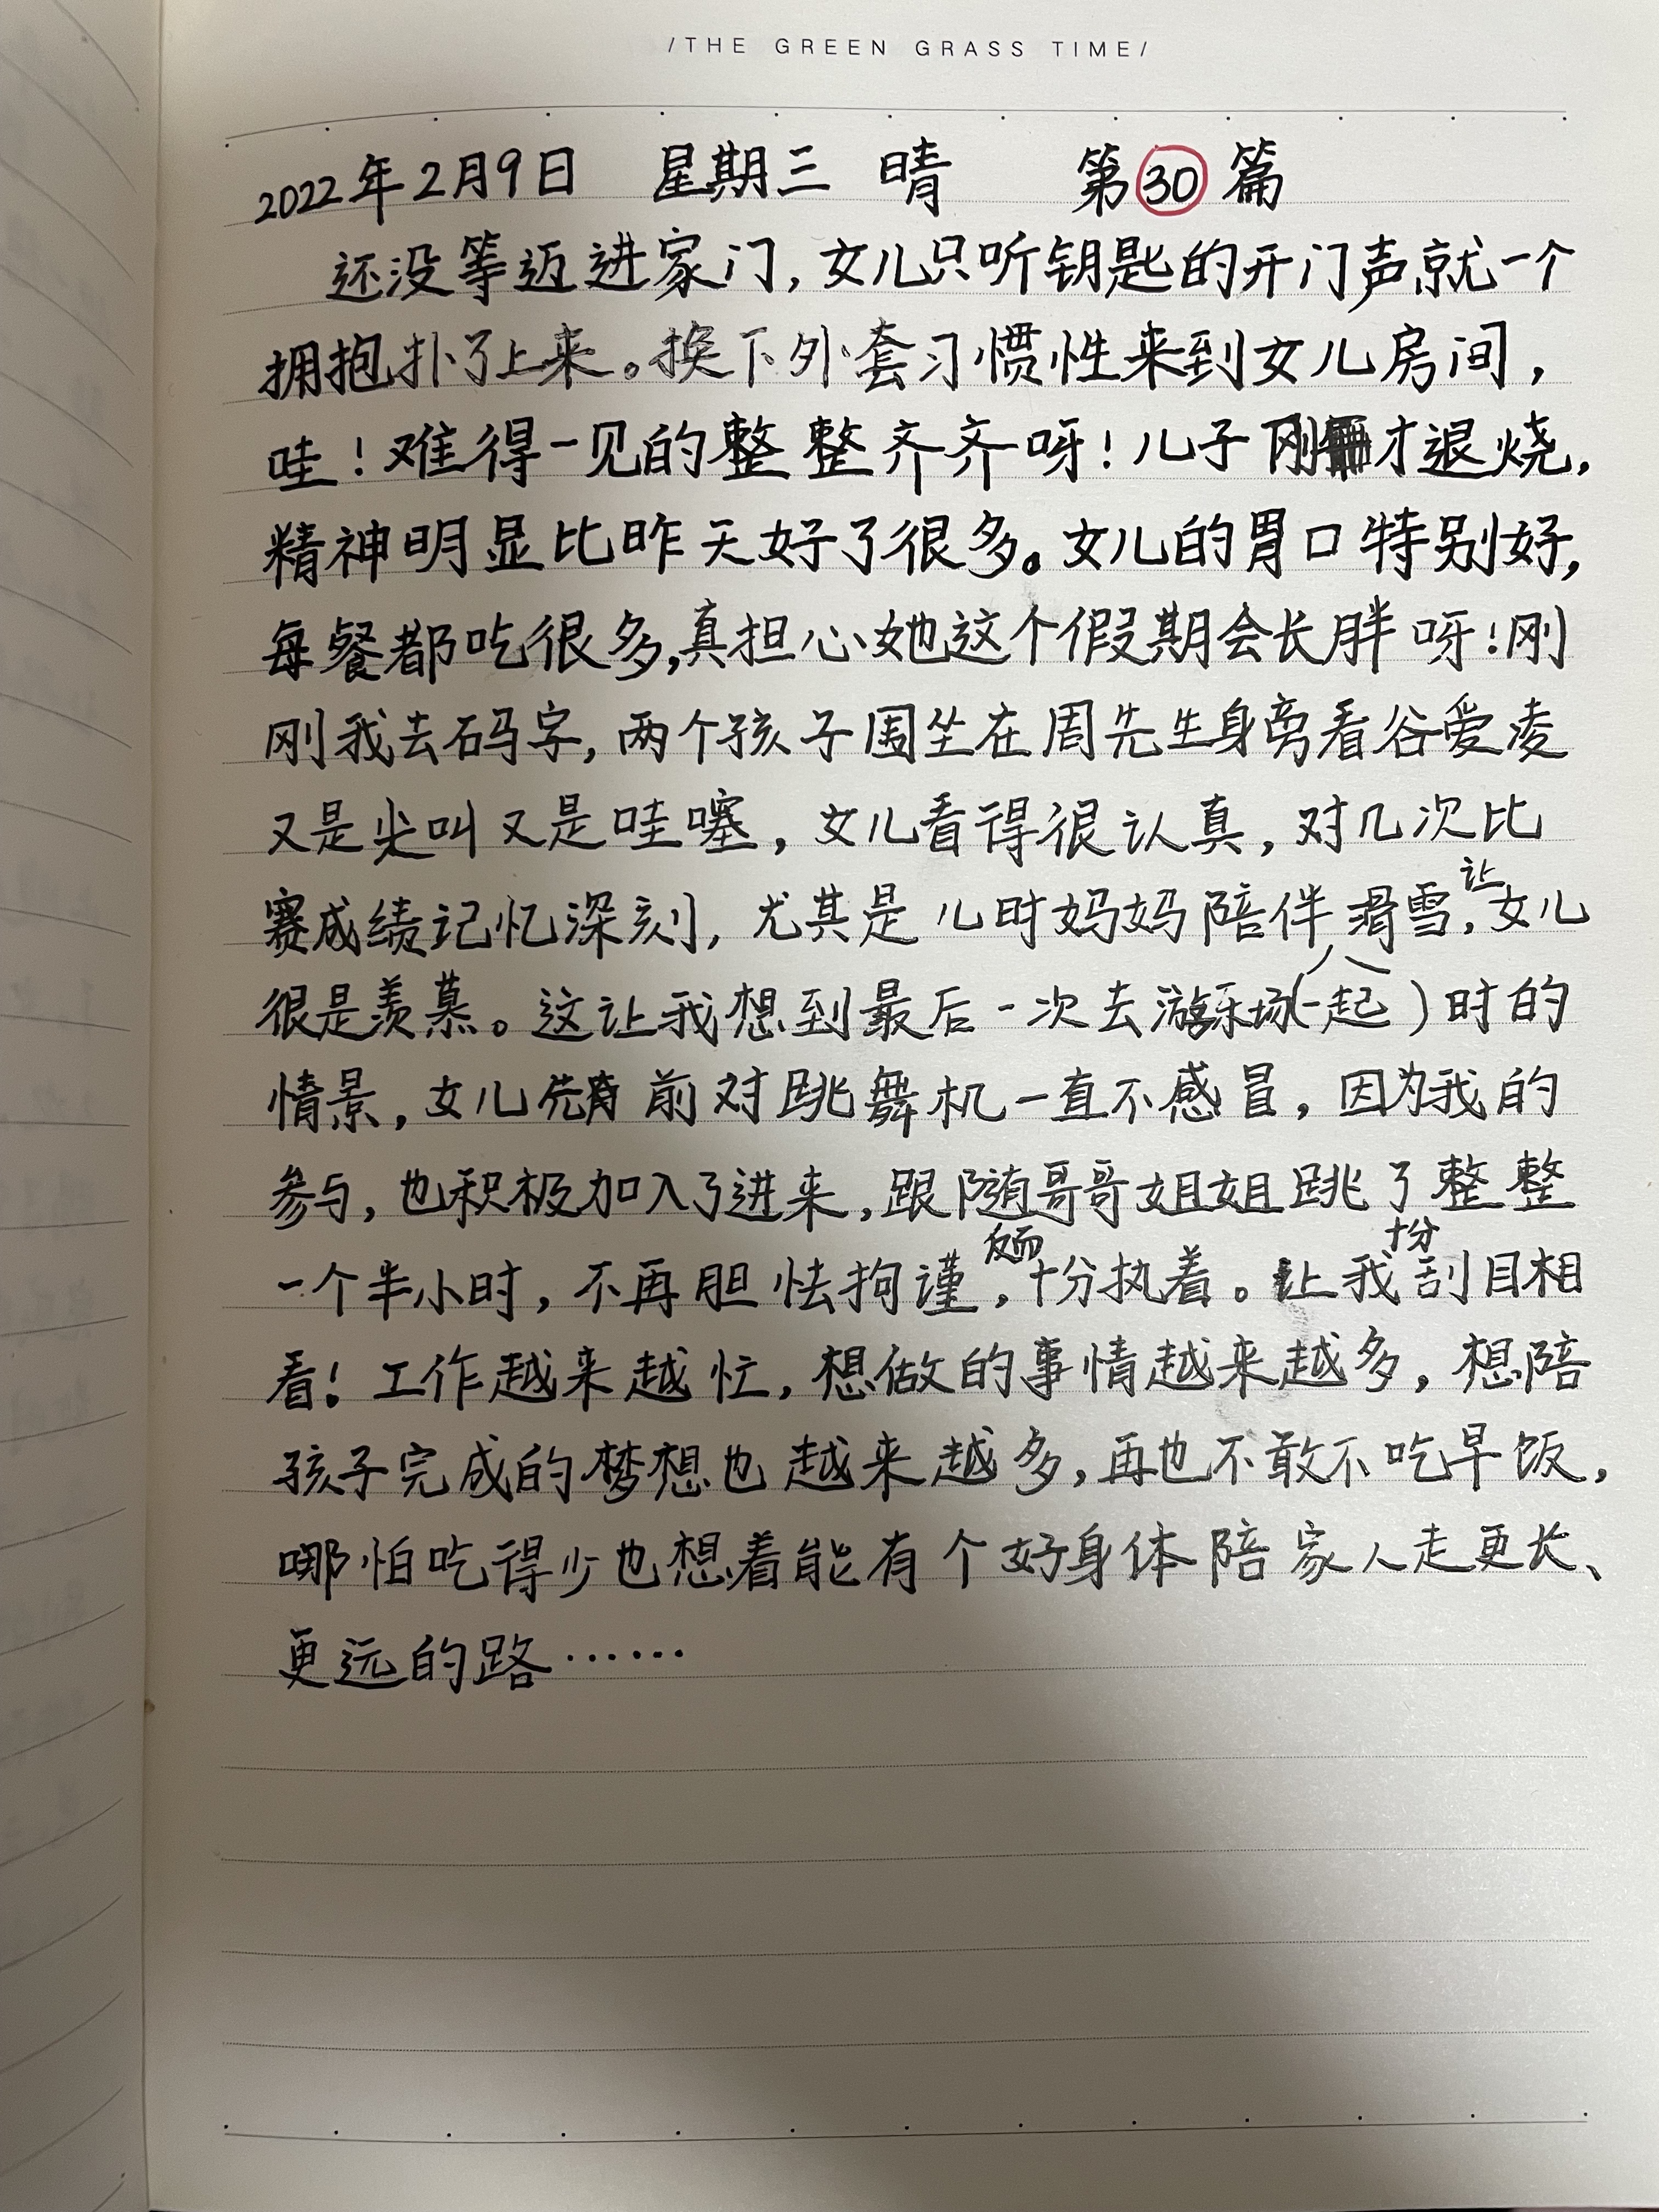 /THE GREEN GRASS TIME/
2022年2月9日 星期三 晴 第30篇
还没等迈进家门,女儿只听钥匙的开门声就一个
拥抱扑了上来。换下外套习惯性来到女儿房间,
哇!难得一见的整整齐齐呀!儿子刚才退烧,
精神明显比昨天好了很多。女儿的胃口特别好,
每餐都吃很多,真担心她这个假期会长胖呀!刚
刚我去码字,两个孩子围坐在周先生身旁看谷爱凌
又是尖叫又是哇噻,女儿看得很认真,对几次比
赛成绩记忆深刻,尤其是儿时妈妈陪伴滑雪,让女儿
很是羡慕。这让我想到最后一次去游乐场(一起)时的
情景,女儿先前对跳舞机一直不感冒,因为我的
参与,也积极加入了进来,跟随哥哥姐姐跳了整整
一个半小时,不再胆怯拘谨,反而十分执着。让我十分刮目相
看!工作越来越忙,想做的事情越来越多,想陪
孩子完成的梦想也越来越多,再也不敢不吃早饭,
哪怕吃得少也想着能有个好身体陪家人走更长、
更远的路……